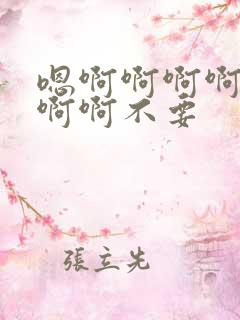 嗯啊啊啊啊
啊啊不要
張立先